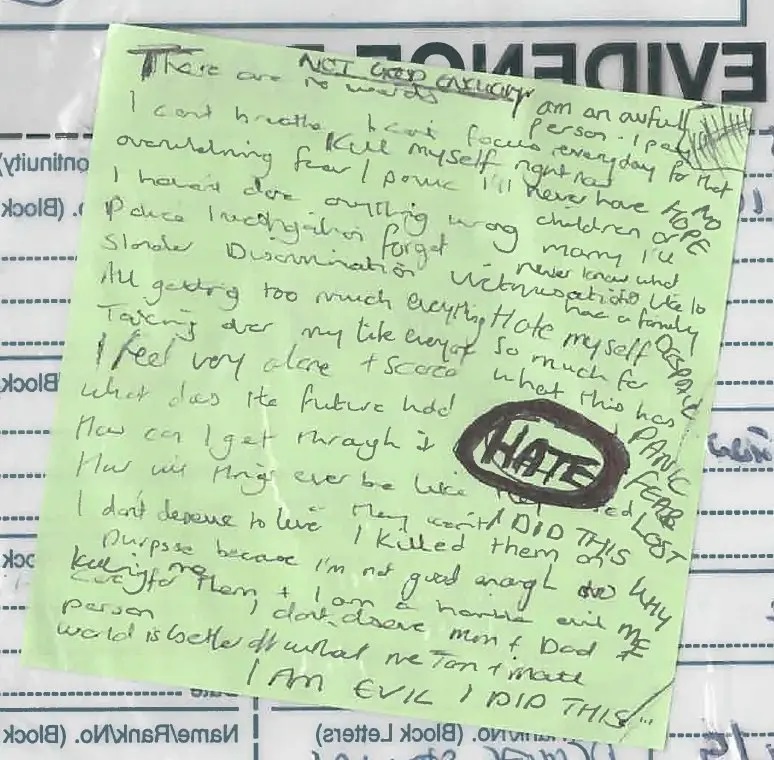 EVIDENCE
NOT GOOD ENOUGH
There are no words
I am an awful person. I pay everyday for that
I cant breathe I cant focus
overwhelming fear / panic
Kill myself right now
I'll never have children or marry I'll never know what
its like to have a family
NO HOPE
I haven't done anything wrong
Police Investigation forget
Slander Discrimination Victimisation
All getting too much everything
Hate myself so much for what this has
DESPAIR
Taking over my life everyone
I feel very alone + scared
what does the future hold
PANIC
How can I get through it
HATE
FEAR
How will things ever be like
LOST
I DID THIS
WHY ME
I don't deserve to live I killed them on
purpose because I'm not good enough to
care for them + I am a horrible evil
person I don't deserve Mum + Dad
killing me
world is better off without me
I AM EVIL I DID THIS
(Continuity
(Block
(Block
Block
Date
Name/Rank/No. (Block
Rank/No. (Block Letters)